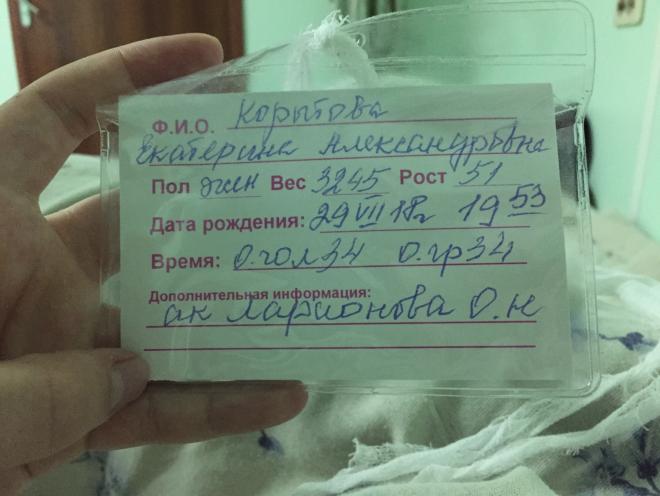 Ф.И.О. Корытова
Екатерина Александровна
Пол жен Вес 3245 Рост 51
Дата рождения: 29 VII 18г 19 53
Время: О.гол34 О.гр34
Дополнительная информация:
ак Ларионова О.Н